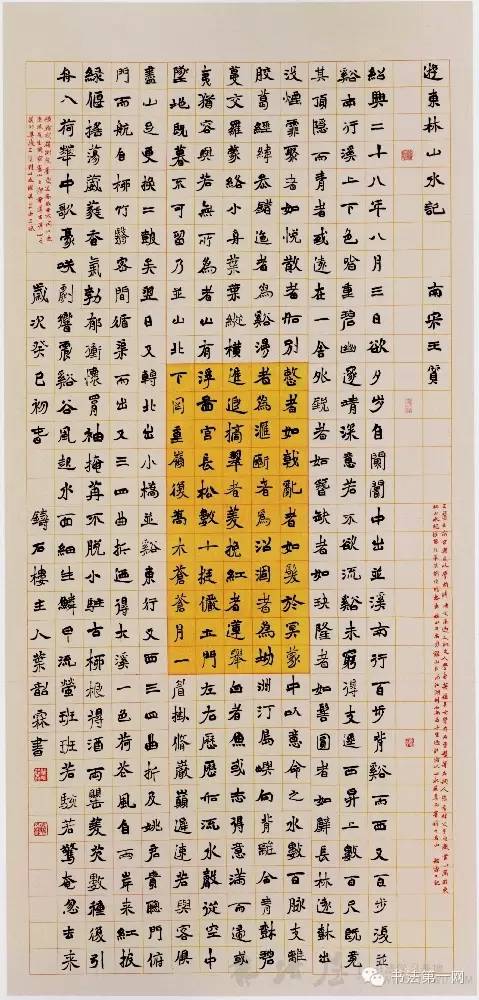 遊東林山水記 南宋王質
紹興二十八年八月三日欲夕步自闤闠中出並溪南行百步背谿而西又百步復並
谿南行溪上下色皆重碧幽邃靖深意若不欲流谿未窮得支逕西昇上數百尺既竟
其頂隱而青者或遠在一舍外銳者如簪缺者如玦隆者如髻圓者如璧長林遠樹出
没煙霏聚者如悅散者如別整者如戟亂者如髮於冥蒙中以意命之水數百脉支離
膠葛經緯參錯迤者為谿漫者為滙斷者為沼涸者為坳洲汀島嶼向背離合青樹碧
蔓交羅蒙絡小舟葉葉縱橫進退摘翠者菱挽紅者蓮舉白者魚或志得意滿而歸或
夷猶容與若無所為者山有浮圖宮長松數十挺儼立門左右歷歷如流水聲從空中
墜也既暮不可留乃並山北下岡重嶺復喬木蒼蒼月一眉掛脩巖巔遲速若與客俱
盡山足更換二鼓矣翌日又轉北出小橋並谿東行又西三四曲折及姚君貴聰門俯
門而航自柳竹翳密間循渠而出又三四曲折迺得大溪一色荷花風自兩岸來紅披
綠偃搖蕩葳蕤香氣勃郁衝懷罥袖掩苒不脫小駐古柳根得酒兩罌菱芡數種復引
舟入荷華中歌豪咲劇響震谿谷風起水面細生鱗甲流螢班班若駭若驚奄忽去來
歲次癸巳初春 鑄石樓主人葉韶霖書
书法第一网